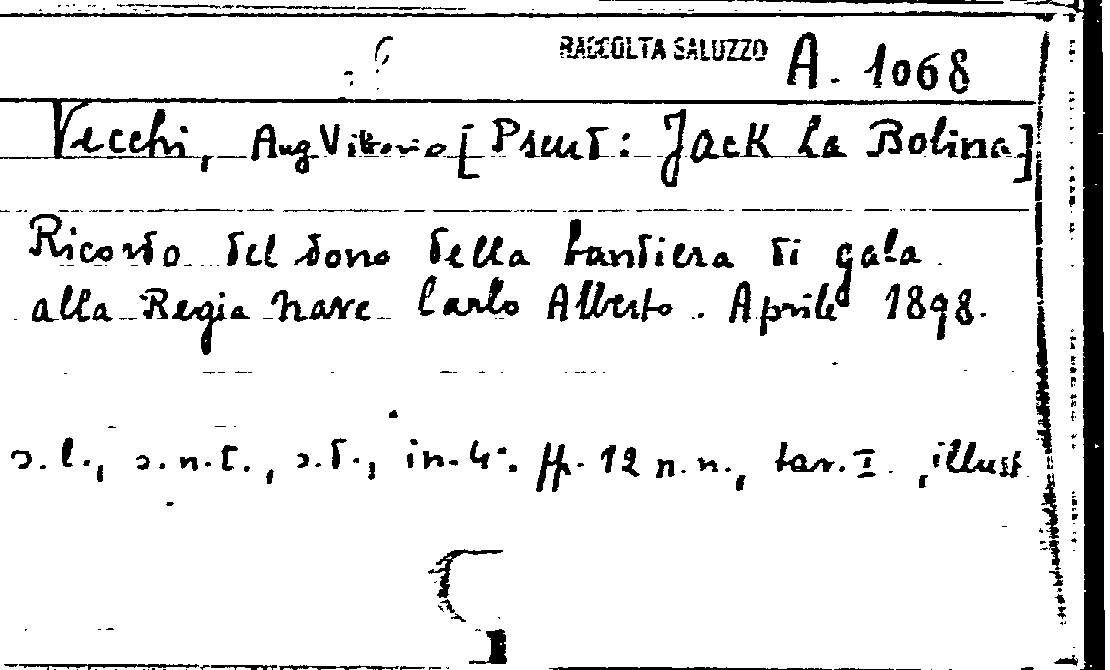 RACCOLTA SALUZZO A. 1068
Vecchi, Aug Vittorio [Pseud: Jack La Bolina]
Ricordo del dono della bandiera di gala
alla Regia nave Carlo Alberto. Aprile 1898.
s.l., s.n.t., s.d., in-4°. ff. 12 n.n., tav. I, illust